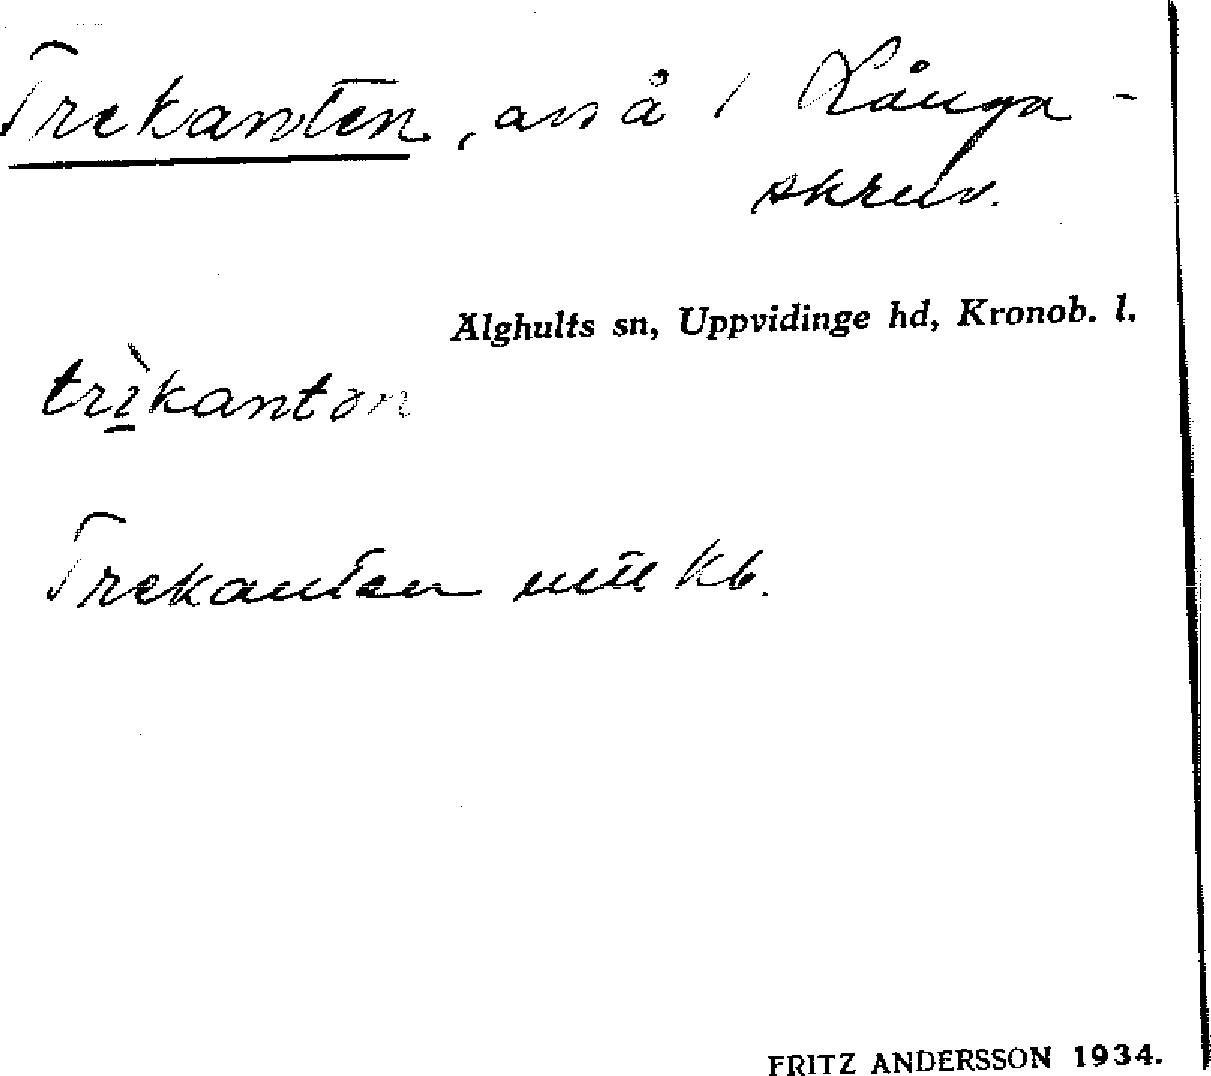 Trekanten, avs å 1 Långa-
skruv.
Älghults sn, Uppvidinge hd, Kronob. l.
trìkantən
Trekanten utt kb.
FRITZ ANDERSSON 1934.